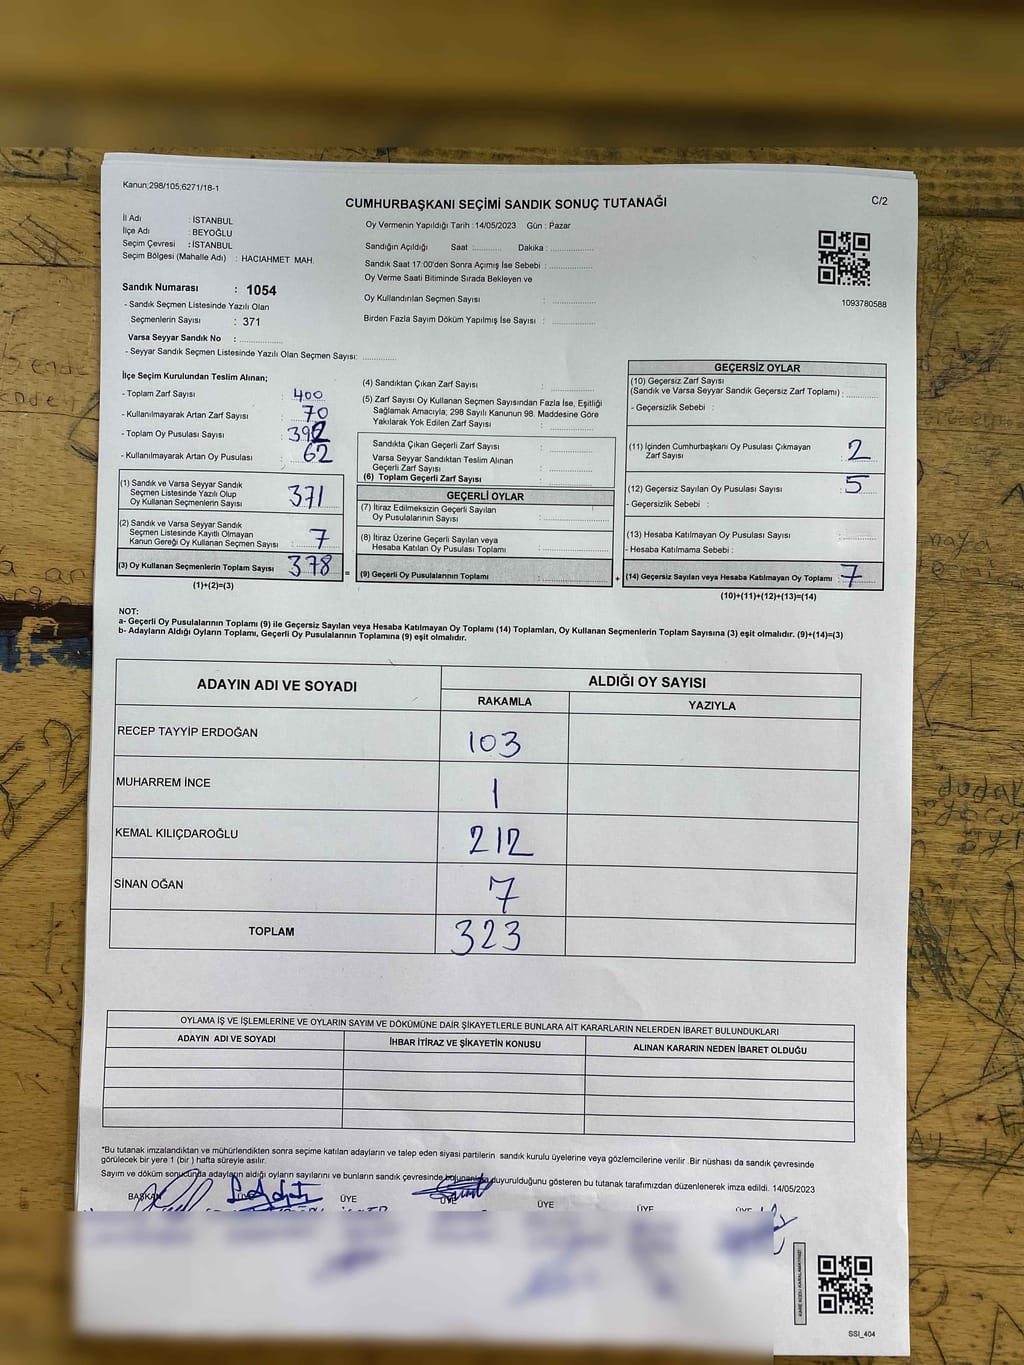 Kanun;298/105;6271/18-1
C/2
CUMHURBAŞKANI SEÇİMİ SANDIK SONUÇ TUTANAĞI
İl Adı : İSTANBUL
İlçe Adı : BEYOĞLU
Seçim Çevresi : İSTANBUL
Seçim Bölgesi (Mahalle Adı) : HACIAHMET MAH.
Sandık Numarası : 1054
- Sandık Seçmen Listesinde Yazılı Olan
Seçmenlerin Sayısı : 371
Varsa Seyyar Sandık No :
- Seyyar Sandık Seçmen Listesinde Yazılı Olan Seçmen Sayısı:
Oy Vermenin Yapıldığı Tarih : 14/05/2023 Gün : Pazar
Sandığın Açıldığı Saat Dakika :
Sandık Saat 17:00'den Sonra Açımış İse Sebebi :
Oy Verme Saati Bitiminde Sırada Bekleyen ve
Oy Kullandırılan Seçmen Sayısı :
Birden Fazla Sayım Döküm Yapılmış İse Sayısı :
1093780588
İlçe Seçim Kurulundan Teslim Alınan;
- Toplam Zarf Sayısı : 400
- Kullanılmayarak Artan Zarf Sayısı : 70
- Toplam Oy Pusulası Sayısı : 392
- Kullanılmayarak Artan Oy Pusulası : 62
(1) Sandık ve Varsa Seyyar Sandık
Seçmen Listesinde Yazılı Olup
Oy Kullanan Seçmenlerin Sayısı : 371
(2) Sandık ve Varsa Seyyar Sandık
Seçmen Listesinde Kayıtlı Olmayan
Kanun Gereği Oy Kullanan Seçmen Sayısı : 7
(3) Oy Kullanan Seçmenlerin Toplam Sayısı : 378
(1)+(2)=(3)
=
(4) Sandıktan Çıkan Zarf Sayısı :
(5) Zarf Sayısı Oy Kullanan Seçmen Sayısından Fazla İse, Eşitliği
Sağlamak Amacıyla; 298 Sayılı Kanunun 98. Maddesine Göre
Yakılarak Yok Edilen Zarf Sayısı :
Sandıkta Çıkan Geçerli Zarf Sayısı :
Varsa Seyyar Sandıktan Teslim Alınan
Geçerli Zarf Sayısı :
(6) Toplam Geçerli Zarf Sayısı :
GEÇERLİ OYLAR
(7) İtiraz Edilmeksizin Geçerli Sayılan
Oy Pusulalarının Sayısı :
(8) İtiraz Üzerine Geçerli Sayılan veya
Hesaba Katılan Oy Pusulası Toplamı :
(9) Geçerli Oy Pusulalarının Toplamı :
+
GEÇERSİZ OYLAR
(10) Geçersiz Zarf Sayısı
(Sandık ve Varsa Seyyar Sandık Geçersiz Zarf Toplamı) :
- Geçersizlik Sebebi :
(11) İçinden Cumhurbaşkanı Oy Pusulası Çıkmayan
Zarf Sayısı : 2
(12) Geçersiz Sayılan Oy Pusulası Sayısı : 5
- Geçersizlik Sebebi :
(13) Hesaba Katılmayan Oy Pusulası Sayısı :
- Hesaba Katılmama Sebebi :
(14) Geçersiz Sayılan veya Hesaba Katılmayan Oy Toplamı : 7
(10)+(11)+(12)+(13)=(14)
NOT:
a- Geçerli Oy Pusulalarının Toplamı (9) ile Geçersiz Sayılan veya Hesaba Katılmayan Oy Toplamı (14) Toplamları, Oy Kullanan Seçmenlerin Toplam Sayısına (3) eşit olmalıdır. (9)+(14)=(3)
b- Adayların Aldığı Oyların Toplamı, Geçerli Oy Pusulalarının Toplamına (9) eşit olmalıdır.
ADAYIN ADI VE SOYADI
ALDIĞI OY SAYISI
RAKAMLA YAZIYLA
RECEP TAYYİP ERDOĞAN 103
MUHARREM İNCE 1
KEMAL KILIÇDAROĞLU 212
SİNAN OĞAN 7
TOPLAM 323
OYLAMA İŞ VE İŞLEMLERİNE VE OYLARIN SAYIM VE DÖKÜMÜNE DAİR ŞİKAYETLERLE BUNLARA AİT KARARLARIN NELERDEN İBARET BULUNDUKLARI
ADAYIN ADI VE SOYADI İHBAR İTİRAZ VE ŞİKAYETİN KONUSU ALINAN KARARIN NEDEN İBARET OLDUĞU
*Bu tutanak imzalandıktan ve mühürlendikten sonra seçime katılan adayların ve talep eden siyasi partilerin sandık kurulu üyelerine veya gözlemcilerine verilir .Bir nüshası da sandık çevresinde
görülecek bir yere 1 (bir ) hafta süreyle asılır.
Sayım ve döküm sonucunda adayların aldığı oyların sayılarını ve bunların sandık çevresinde duyurulduğunu gösteren bu tutanak tarafımızdan düzenlenerek imza edildi. 14/05/2023
BAŞKAN ÜYE ÜYE ÜYE ÜYE ÜYE ÜYE
SSI_404